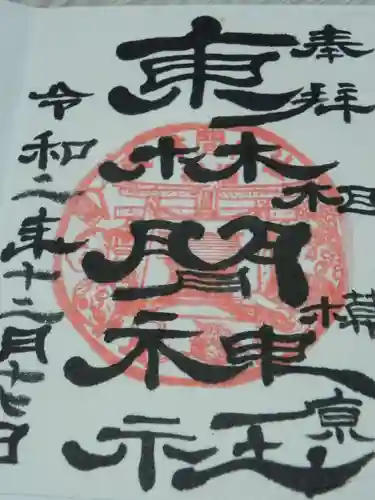 奉拝 相模原
東林間神社
令和二年十二月十七日